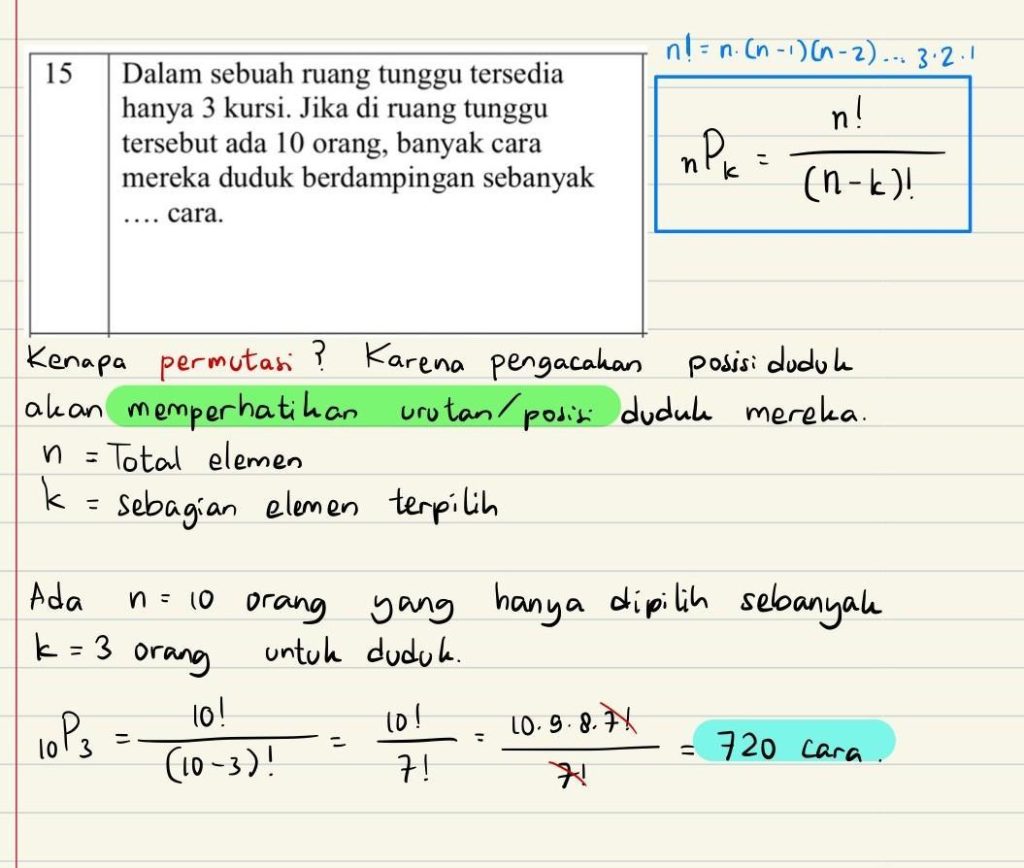 n! = n.(n-1)(n-2)... 3.2.1
15 Dalam sebuah ruang tunggu tersedia
hanya 3 kursi. Jika di ruang tunggu
tersebut ada 10 orang, banyak cara
mereka duduk berdampingan sebanyak
.... cara.
nPk = n! / (n-k)!
Kenapa permutasi ? Karena pengacakan posisi duduk
akan memperhatikan urutan/posisi duduk mereka.
n = Total elemen
k = sebagian elemen terpilih
Ada n = 10 orang yang hanya dipilih sebanyak
k = 3 orang untuk duduk.
10P3 = 10! / (10-3)! = 10! / 7! = 10.9.8.7! / 7! = 720 cara.